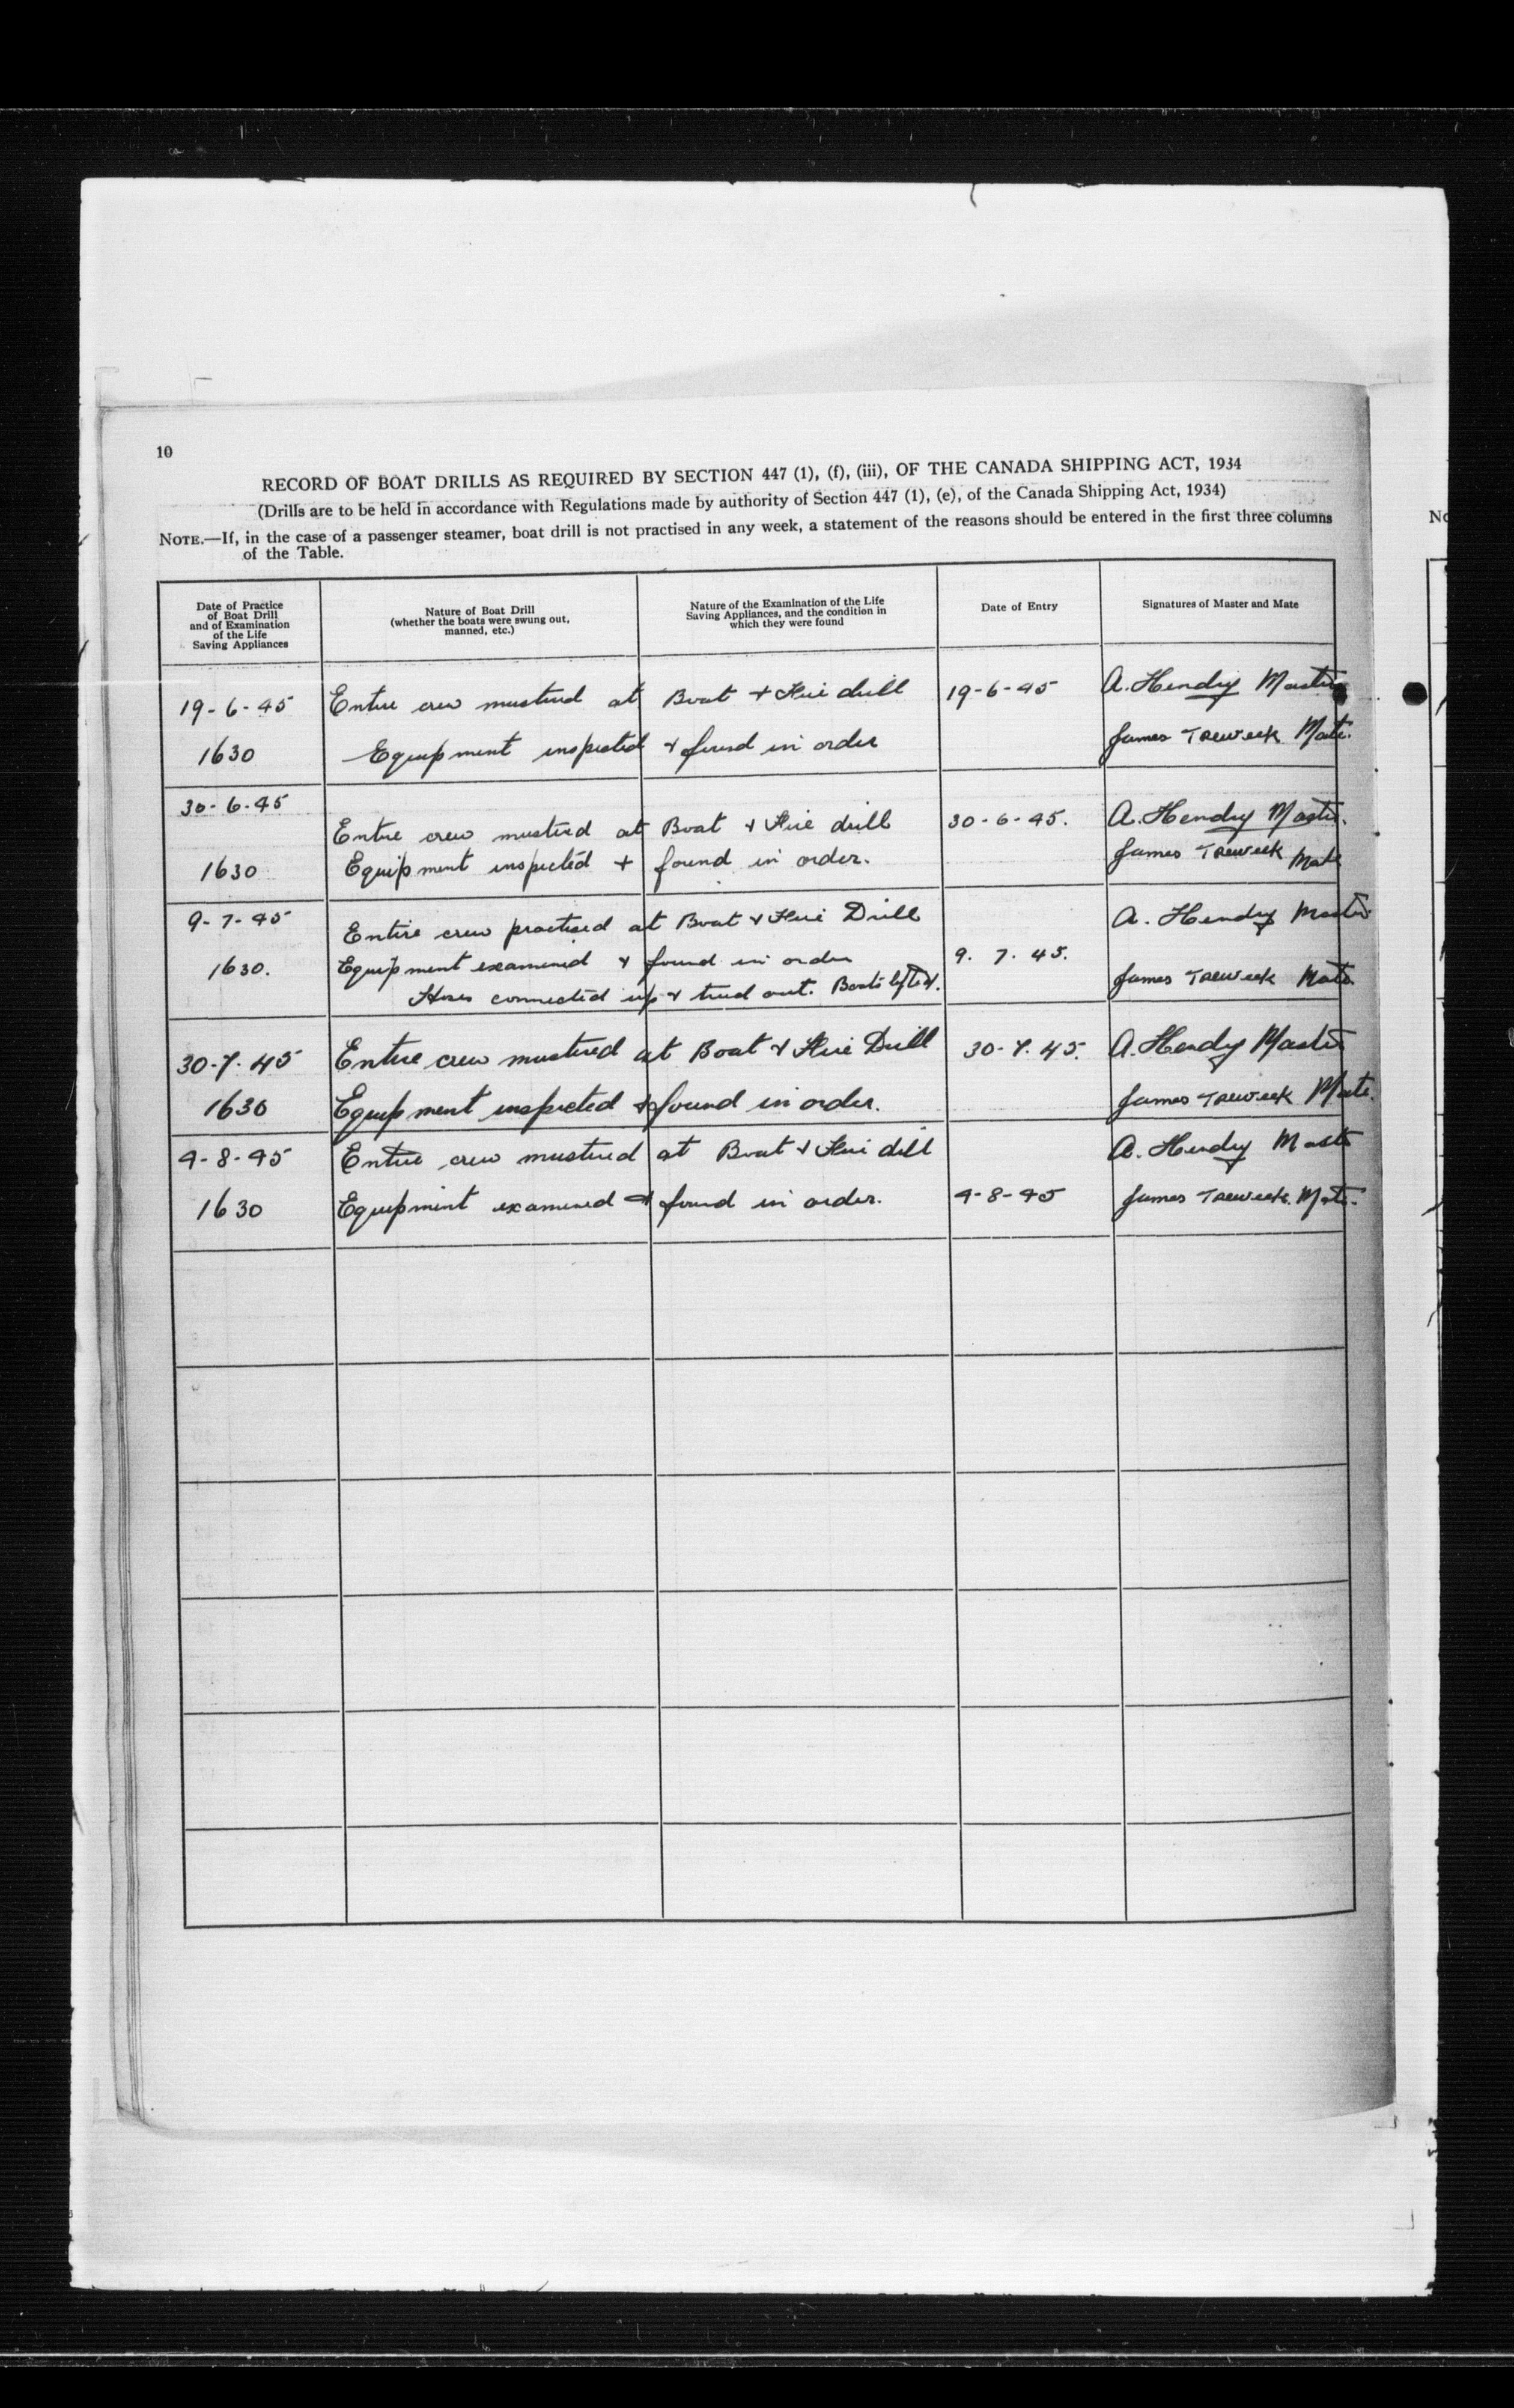 10
RECORD OF BOAT DRILLS AS REQUIRED BY SECTION 447 (1), (f), (iii), OF THE CANADA SHIPPING ACT, 1934
(Drills are to be held in accordance with Regulations made by authority of Section 447 (1), (e), of the Canada Shipping Act, 1934)
NOTE.—If, in the case of a passenger steamer, boat drill is not practised in any week, a statement of the reasons should be entered in the first three columns
of the Table.
No
Date of Practice
of Boat Drill
and of Examination
of the Life
Saving Appliances
Nature of Boat Drill
(whether the boats were swung out,
manned, etc.)
Nature of the Examination of the Life
Saving Appliances, and the condition in
which they were found
Date of Entry
Signatures of Master and Mate
19-6-45 Entire crew mustered at Boat + Fire drill 19-6-45 A. Hendry Master
1630 Equipment inspected + found in order James Treweek Mate.
30-6-45
Entire crew mustered at Boat + Fire drill 30-6-45. A. Hendry Master.
1630 Equipment inspected + found in order. James Treweek Mate
9-7-45 Entire crew practised at Boat + Fire Drill A. Hendry Master
1630. Equipment examined + found in order 9. 7. 45. James Treweek Mate
Hoses connected up + tried out. Boats lifted.
30-7-45 Entire crew mustered at Boat + Fire Drill 30-7-45. A. Hendry Master
1630 Equipment inspected + found in order. James Treweek Mate.
4-8-45 Entire crew mustered at Boat + Fire dill A. Hendry Mast
1630 Equipment examined + found in order. 4-8-45 James Treweek. Mate.